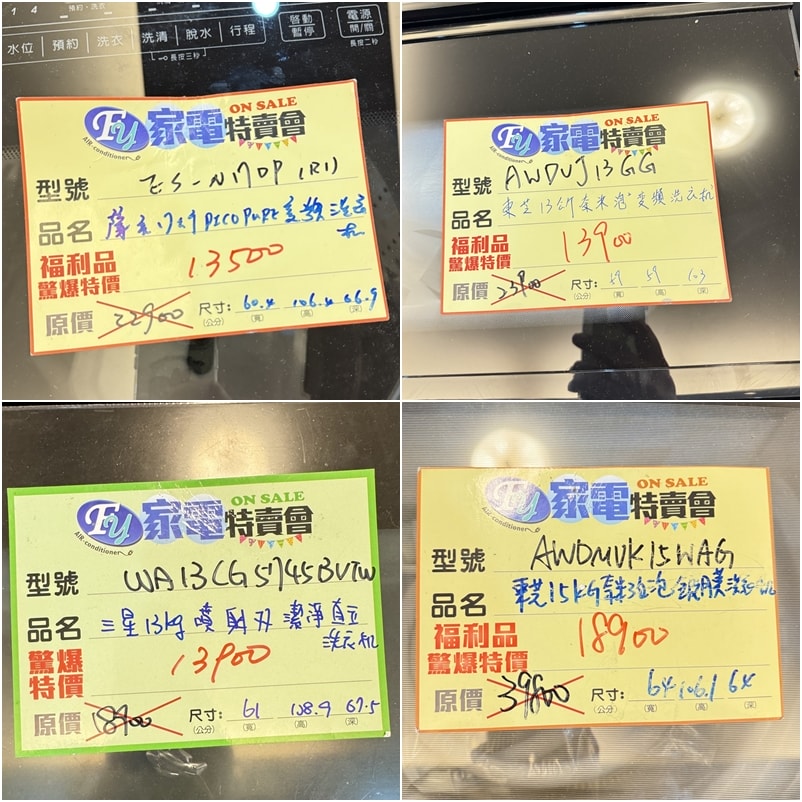 1 4 預約·洗衣
水位 預約 洗衣 洗清 脫水 行程 啓動 暫停 電源 開/關
長按三秒 長按二秒
FY 家電特賣會 ON SALE
AIR-conditioner
型號 ES-N17DP (R1)
品名 聲寶17公斤 PICO PURE 變頻 洗衣
机
福利品
驚爆特價 13500
原價 22900 尺寸: 60.4 106.4 66.9
(公分) (寬) (高) (深)
FY 家電特賣會 ON SALE
AIR-conditioner
型號 AWDUJ13GG
品名 東芝13公斤奈米泡變頻洗衣机
福利品
驚爆特價 13900
原價 23900 尺寸: 59 59 103
(公分) (寬) (高) (深)
FY 家電特賣會 ON SALE
AIR-conditioner
型號 WA13CG5745BVTW
品名 三星13kg 噴射双潔淨直立
洗衣机
驚爆
特價 13900
原價 18900 尺寸: 61 108.9 67.5
(公分) (寬) (高) (深)
FY 家電特賣會 ON SALE
AIR-conditioner
型號 AWDMUK15WAG
品名 東芝15KG奈米泡泡鍍膜洗衣机
福利品
驚爆特價 18900
原價 39800 尺寸: 64 106.1 64
(公分) (寬) (高) (深)